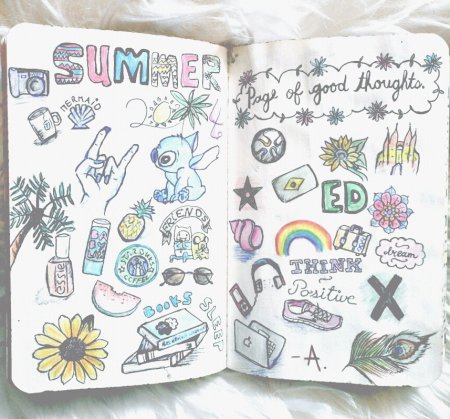 SUMMER
MERMAID
2
4
FRIENDS
essie
STARBUCKS
COFFEE
BOOKS
SLEEP
Page of good thoughts.
ED
Dream
THINK
Positive
X
-A.